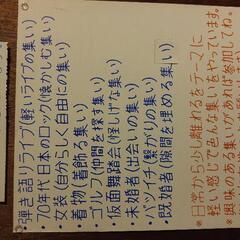 弾き語りライブ(軽いライブの集い)
・70年代日本のロック(懐かしむ集い)
・女装(自分らしく自由にの集い)
・着物(着飾る集い)
・ゴルフ(仲間を探す集い)
・仮面舞踏会(怪しげな集い)
・未婚者(出会いの集い)
・バツイチ(繋がりの集い)
・既婚者(隙間を埋める集い)
*日常から少し離れるをテーマに
軽い感じで色んな集いをやっています。
*興味のある集いがあれば参加してね。